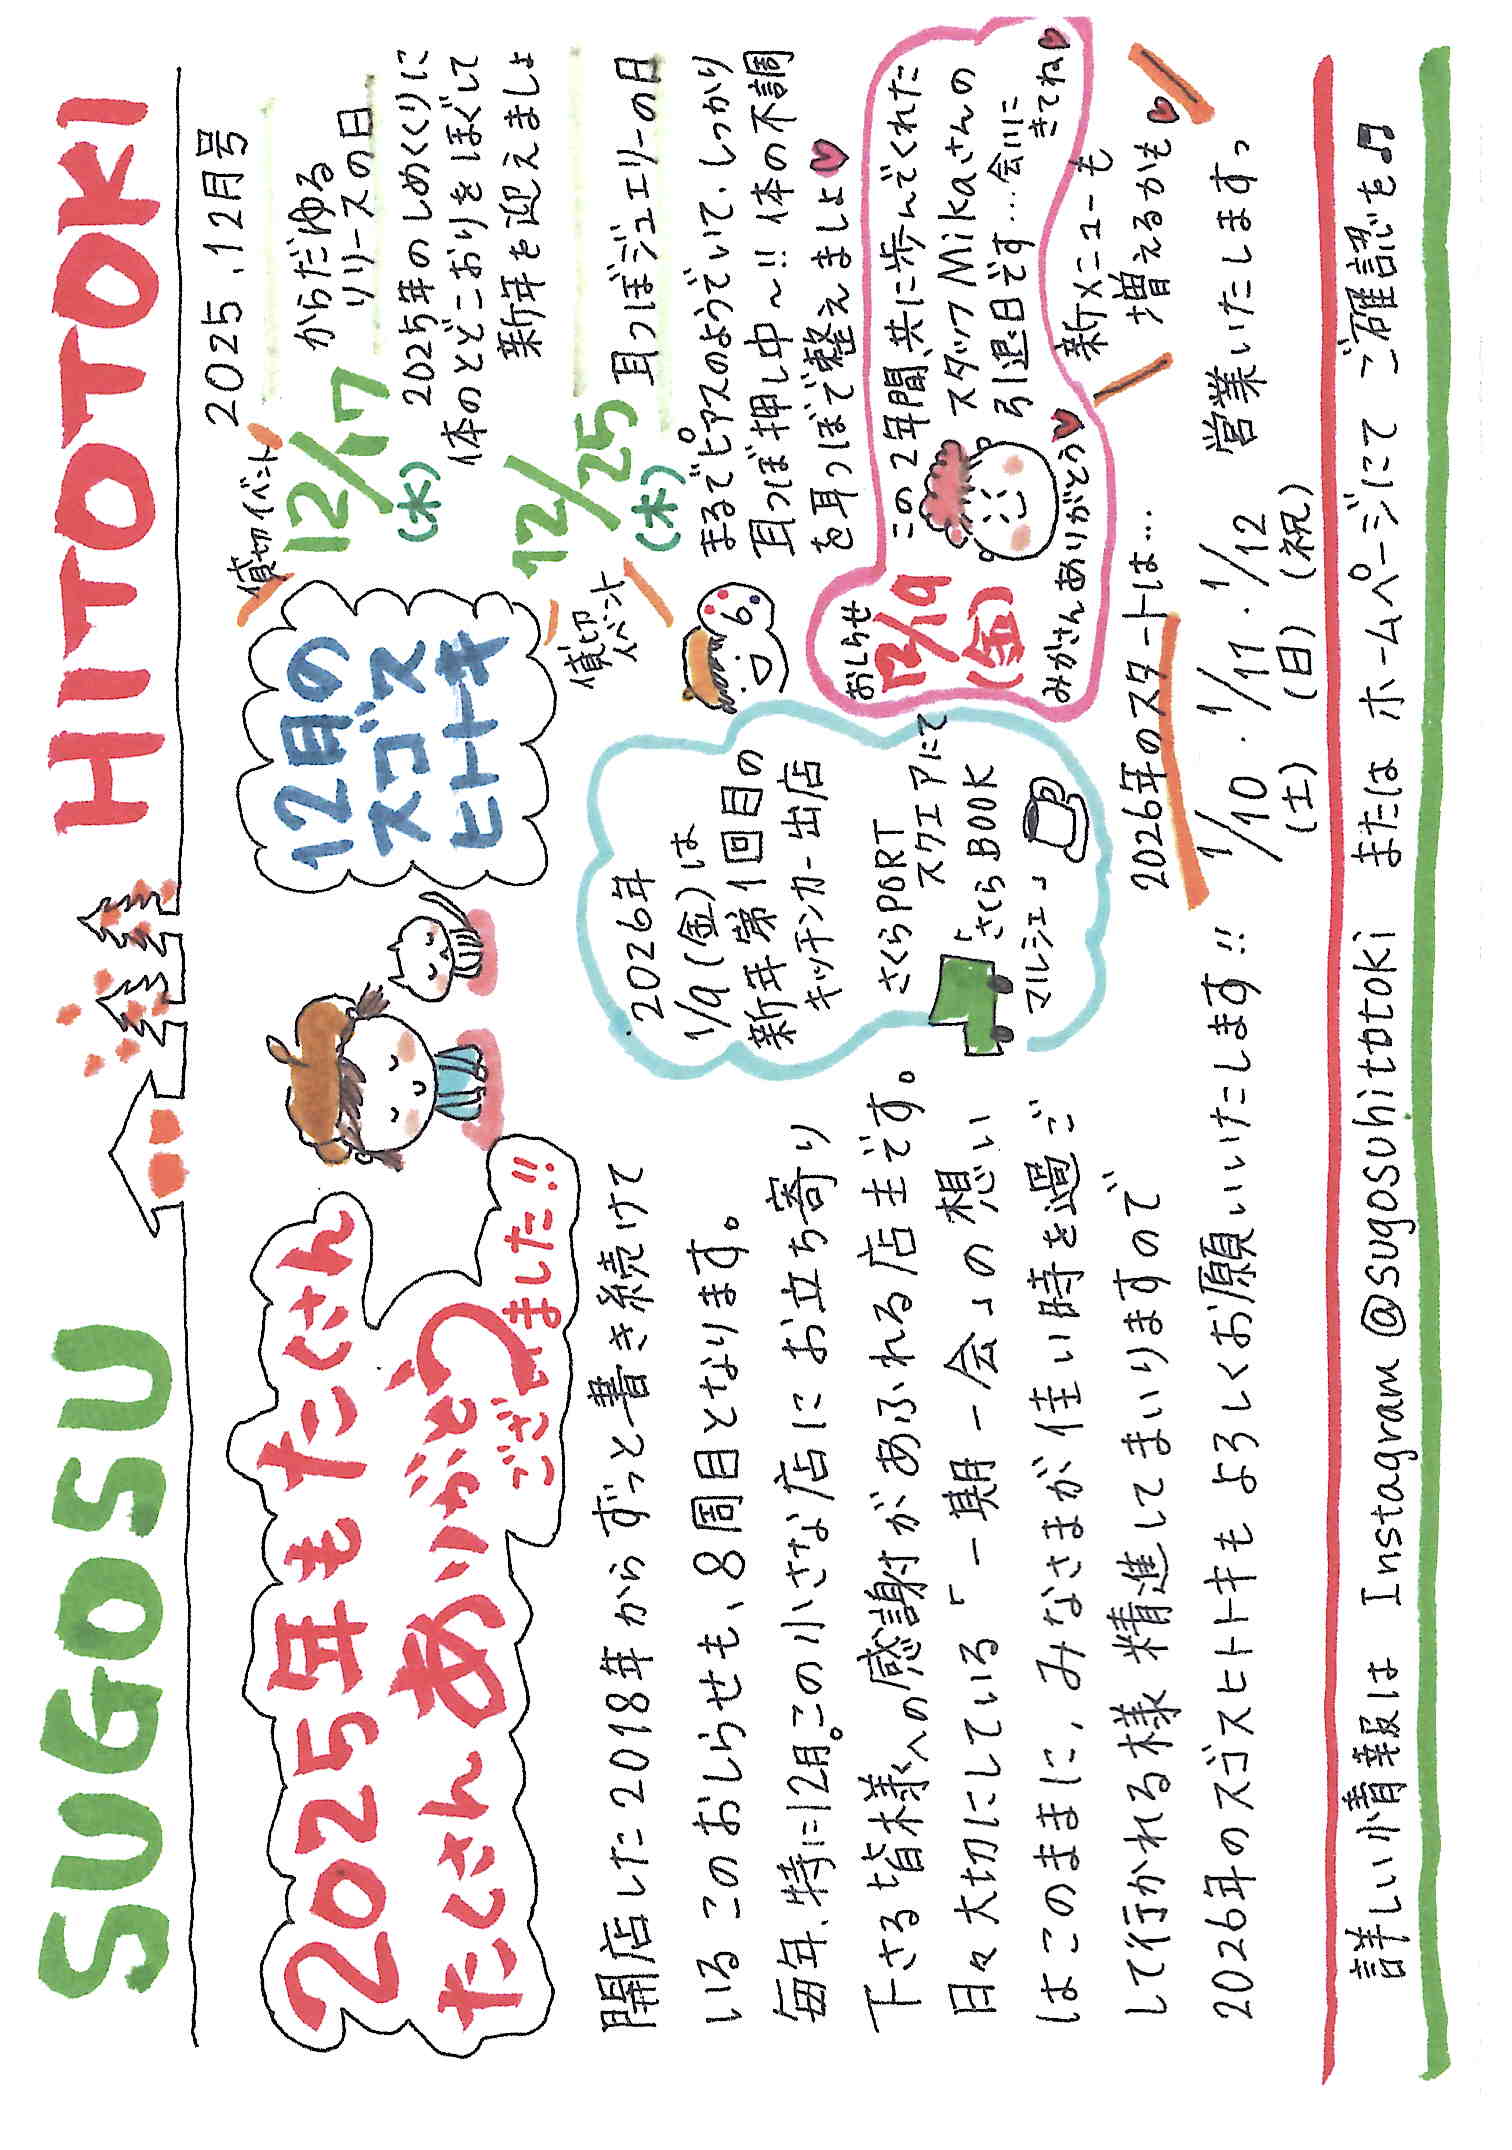 SUGOSU HITOTOKI
2025.12月号
2025年もたくさん
たくさん ありがとう
ござい
ました!!
開店した2018年からずっと書き続けて
いるこのおしらせも、8周目となります。
毎年、特に12月。この小さな店にお立ち寄り
下さる皆様への感謝があふれる店主です。
日々大切にしている「一期一会」の想い
はこのままに、みなさまが佳い時を過ご
して行かれる様 精進してまいりますので
2026年のスゴスヒトトキもよろしくお願いいたします!!
12月の
スゴス
ヒトトキ
貸切イベント
12/17
(水)
からだゆる
リリースの日
2025年のしめくくりに
体のとどこおりをほぐして
新年を迎えましょ
貸切
イベント
12/25
(木)
耳つぼジュエリーの日
まるでピアスのようでいて、しっかり
耳つぼ押し中〜!! 体の不調
を耳つぼで整えましょ♥
おしらせ
12/19
(金)
この2年間、共に歩んでくれた
スタッフMikaさんの
引退日です…会いに
きてね♥
みかさんありがとう♥
2026年
1/9(金)は
新年第1回目の
キッチンカー出店
さくらPORT
スクエアにて
「さくらBOOK
マルシェ」
新メニューも
増えるかも♥
2026年のスタートは…
1/10・1/11・1/12
(土) (日) (祝)
営業いたします。
詳しい情報は Instagram @sugosuhitotoki または ホームページにて ご確認を♫